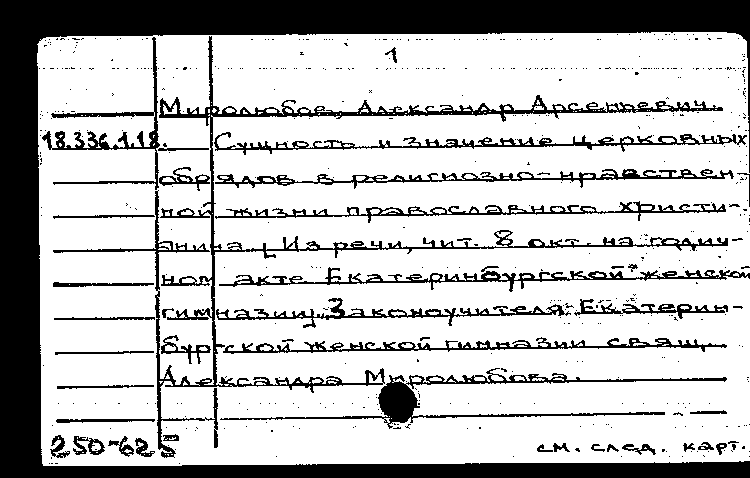 1
Миролюбов, Александр Арсеньевич.
18.336.1.18. Сущность и значение церковных
обрядов в религиозно-нравствен-
ной жизни православного христи-
анина [Из речи, чит. 8 окт. на годич-
ном акте Екатеринбургской женской
гимназии]. Законоучителя Екатерин-
бургской женской гимназии свящ.
Александра Миролюбова.
250-625 см. след. карт.